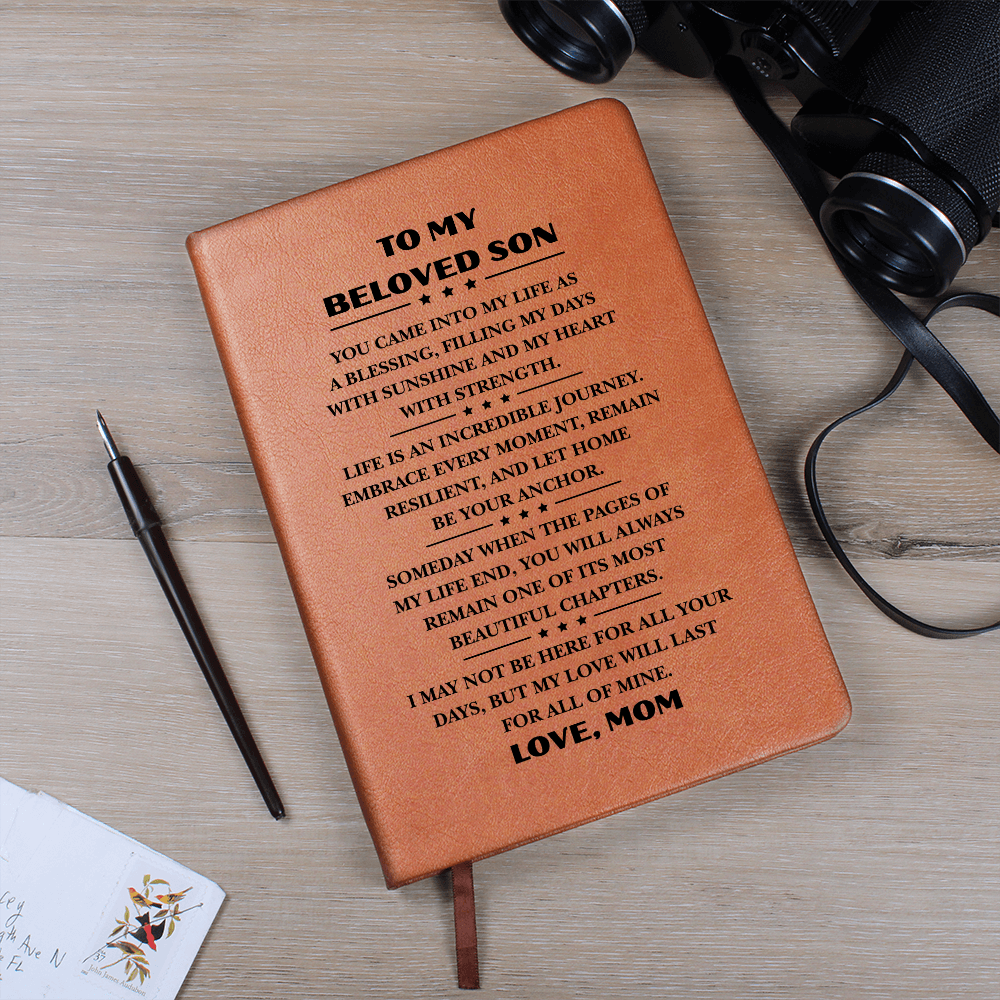 TO MY
BELOVED SON
YOU CAME INTO MY LIFE AS
A BLESSING, FILLING MY DAYS
WITH SUNSHINE AND MY HEART
WITH STRENGTH.
LIFE IS AN INCREDIBLE JOURNEY.
EMBRACE EVERY MOMENT, REMAIN
RESILIENT, AND LET HOME
BE YOUR ANCHOR.
SOMEDAY WHEN THE PAGES OF
MY LIFE END, YOU WILL ALWAYS
REMAIN ONE OF ITS MOST
BEAUTIFUL CHAPTERS.
I MAY NOT BE HERE FOR ALL YOUR
DAYS, BUT MY LOVE WILL LAST
FOR ALL OF MINE.
LOVE, MOM
Ave N
FL
37
John James Audubon